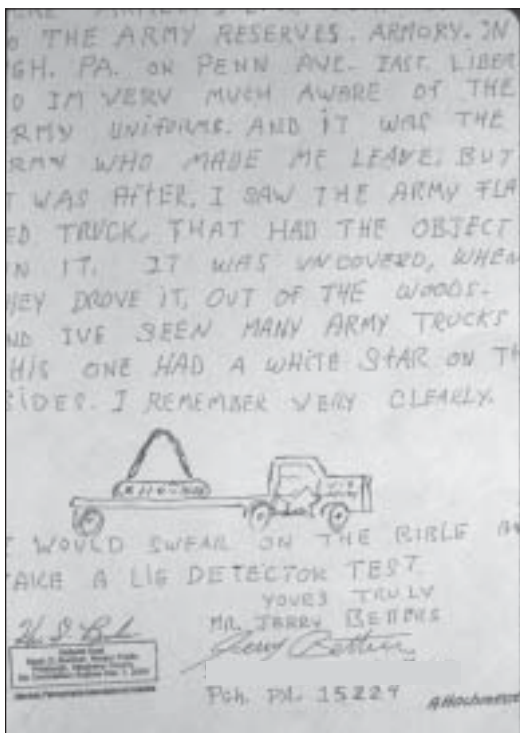 THE ARMY RESERVES. ARMORY. IN
GH. PA. ON PENN AVE. EAST. LIBER
IM VERY MUCH AWARE OF THE
RMY UNIFORMS. AND IT WAS THE
RMY WHO MADE ME LEAVE. BUT
T WAS AFTER, I SAW THE ARMY FLA
ED TRUCK, THAT HAD THE OBJECT
N IT. IT WAS UNCOVERD, WHEN
HEY DROVE IT, OUT OF THE WOODS.
ND IVE SEEN MANY ARMY TRUCKS
HIS ONE HAD A WHITE STAR ON TH
SIDES. I REMEMBER VERY CLEARLY.
I WOULD SWEAR ON THE BIBLE
TAKE A LIE DETECTOR TEST
YOURS TRULY
MR. JERRY BETTERS
Jerry Betters
Notarial Seal
PGh. PA. 15224
Attachment